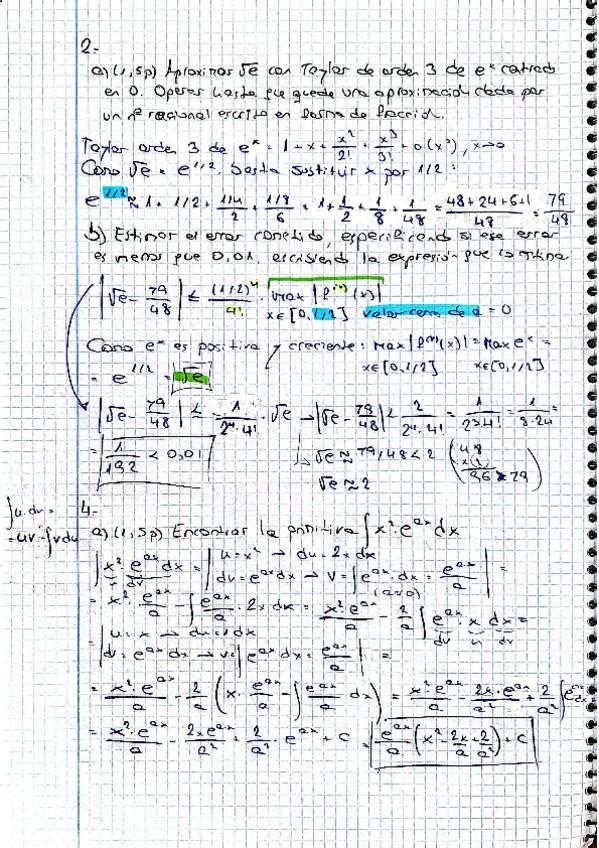 2.-
a) (1,5p) Aproximar √e con Taylor de orden 3 de e^x centrado
en 0. Operar hasta que quede una aproximación dada por
un nº racional escrito en forma de fracción.
Taylor orden 3 de e^x = 1 + x + x²/2! + x³/3! + o(x³), x→0
Como √e = e^1/2, basta sustituir x por 1/2:
e^1/2 ≈ 1 + 1/2 + (1/4)/2 + (1/8)/6 = 1 + 1/2 + 1/8 + 1/48 = (48+24+6+1)/48 = 79/48
b) Estimar el error cometido, especificando si ese error
es menor que 0,01, escribiendo la expresión que lo
|√e - 79/48| ≤ (1/2)⁴/4! · max |f^(4)(x)|
x∈[0,1/2] valor cerca de a = 0
Como e^x es positiva y creciente: max |f^(4)(x)| = max e^x =
x∈[0,1/2] x∈[0,1/2]
= e^1/2 = √e
|√e - 79/48| ≤ 1/(2⁴·4!) · √e → |√e - 79/48| < 2/(2⁴·4!) = 1/(2³·4!) = 1/(8·24) =
= 1/192 < 0,01 ↳ √e ≈ 79/48 < 2 (48 x2 96 > 79)
√e ≈ 2
∫u·dv =
= uv - ∫v du
4.-
a) (1,5p) Encontrar la primitiva ∫x²·e^ax dx
∫x²·e^ax dx = | u = x² → du = 2x dx
dv = e^ax dx → v = ∫e^ax·dx = e^ax/a | =
(a≠0)
= x²·e^ax/a - ∫e^ax/a · 2x dx = x²·e^ax/a - 2/a ∫e^ax · x dx =
= | u = x → du = dx
dv = e^ax dx → v = ∫e^ax dx = e^ax/a | =
= x²·e^ax/a - 2/a (x·e^ax/a - ∫e^ax/a dx) = x²·e^ax/a - 2x·e^ax/a² + 2/a² ∫e^ax dx
= x²·e^ax/a - 2x e^ax/a² + 2/a² · e^ax + C = e^ax/a (x² - 2x/a + 2/a²) + C